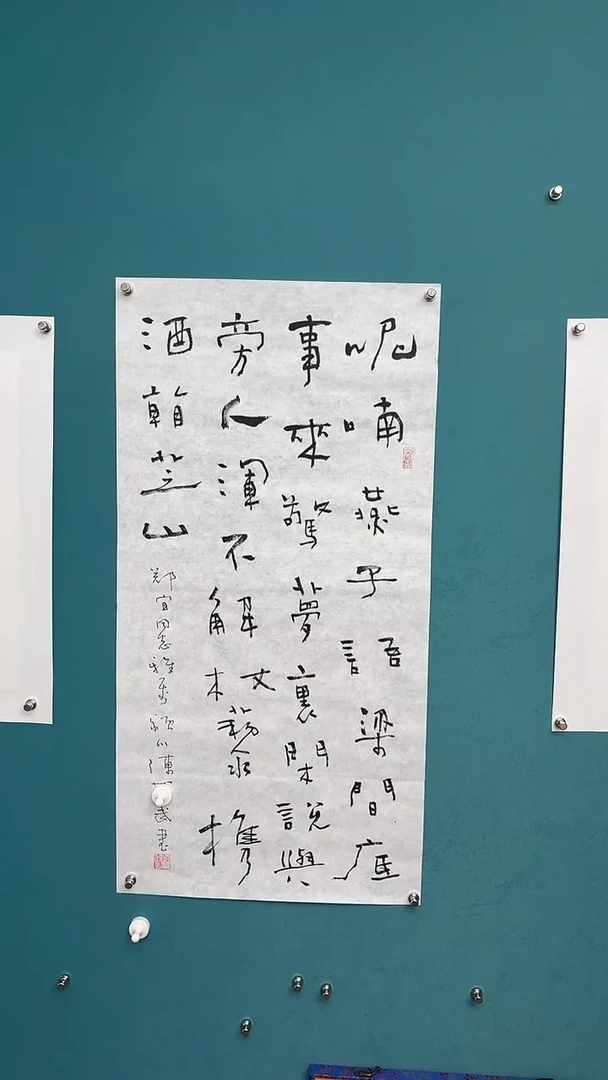 呢喃燕子語梁間底
事來驚夢裏閑說與
旁人渾不解杖藜攜
酒看芝山
鄭宜同志雅屬 陳 武書